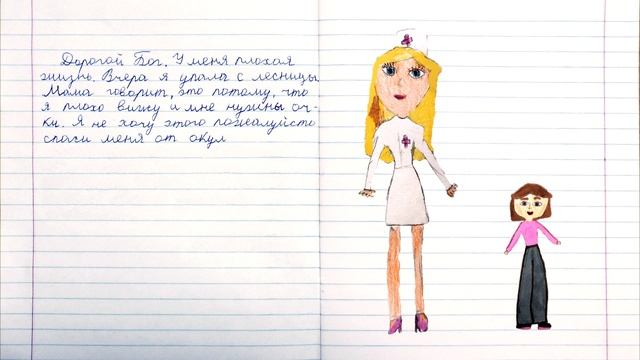 Дорогой Бог. У меня плохая
жизнь. Вчера я упала с лесницы.
Мама говорит, это потому, что
я плохо вижу и мне нужны оч-
ки. Я не хочу этого пожалуйсто
спаси меня от окул